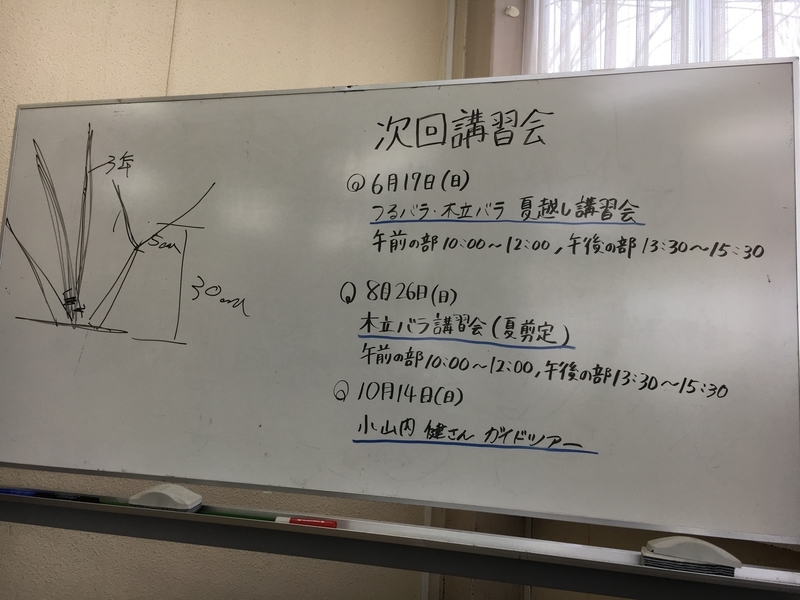 3年
5cm
30cm
次回講習会
6月17日(日)
つるバラ・木立バラ 夏越し講習会
午前の部 10:00〜12:00, 午後の部 13:30〜15:30
8月26日(日)
木立バラ講習会(夏剪定)
午前の部 10:00〜12:00, 午後の部 13:30〜15:30
10月14日(日)
小山内 健さん ガイドツアー